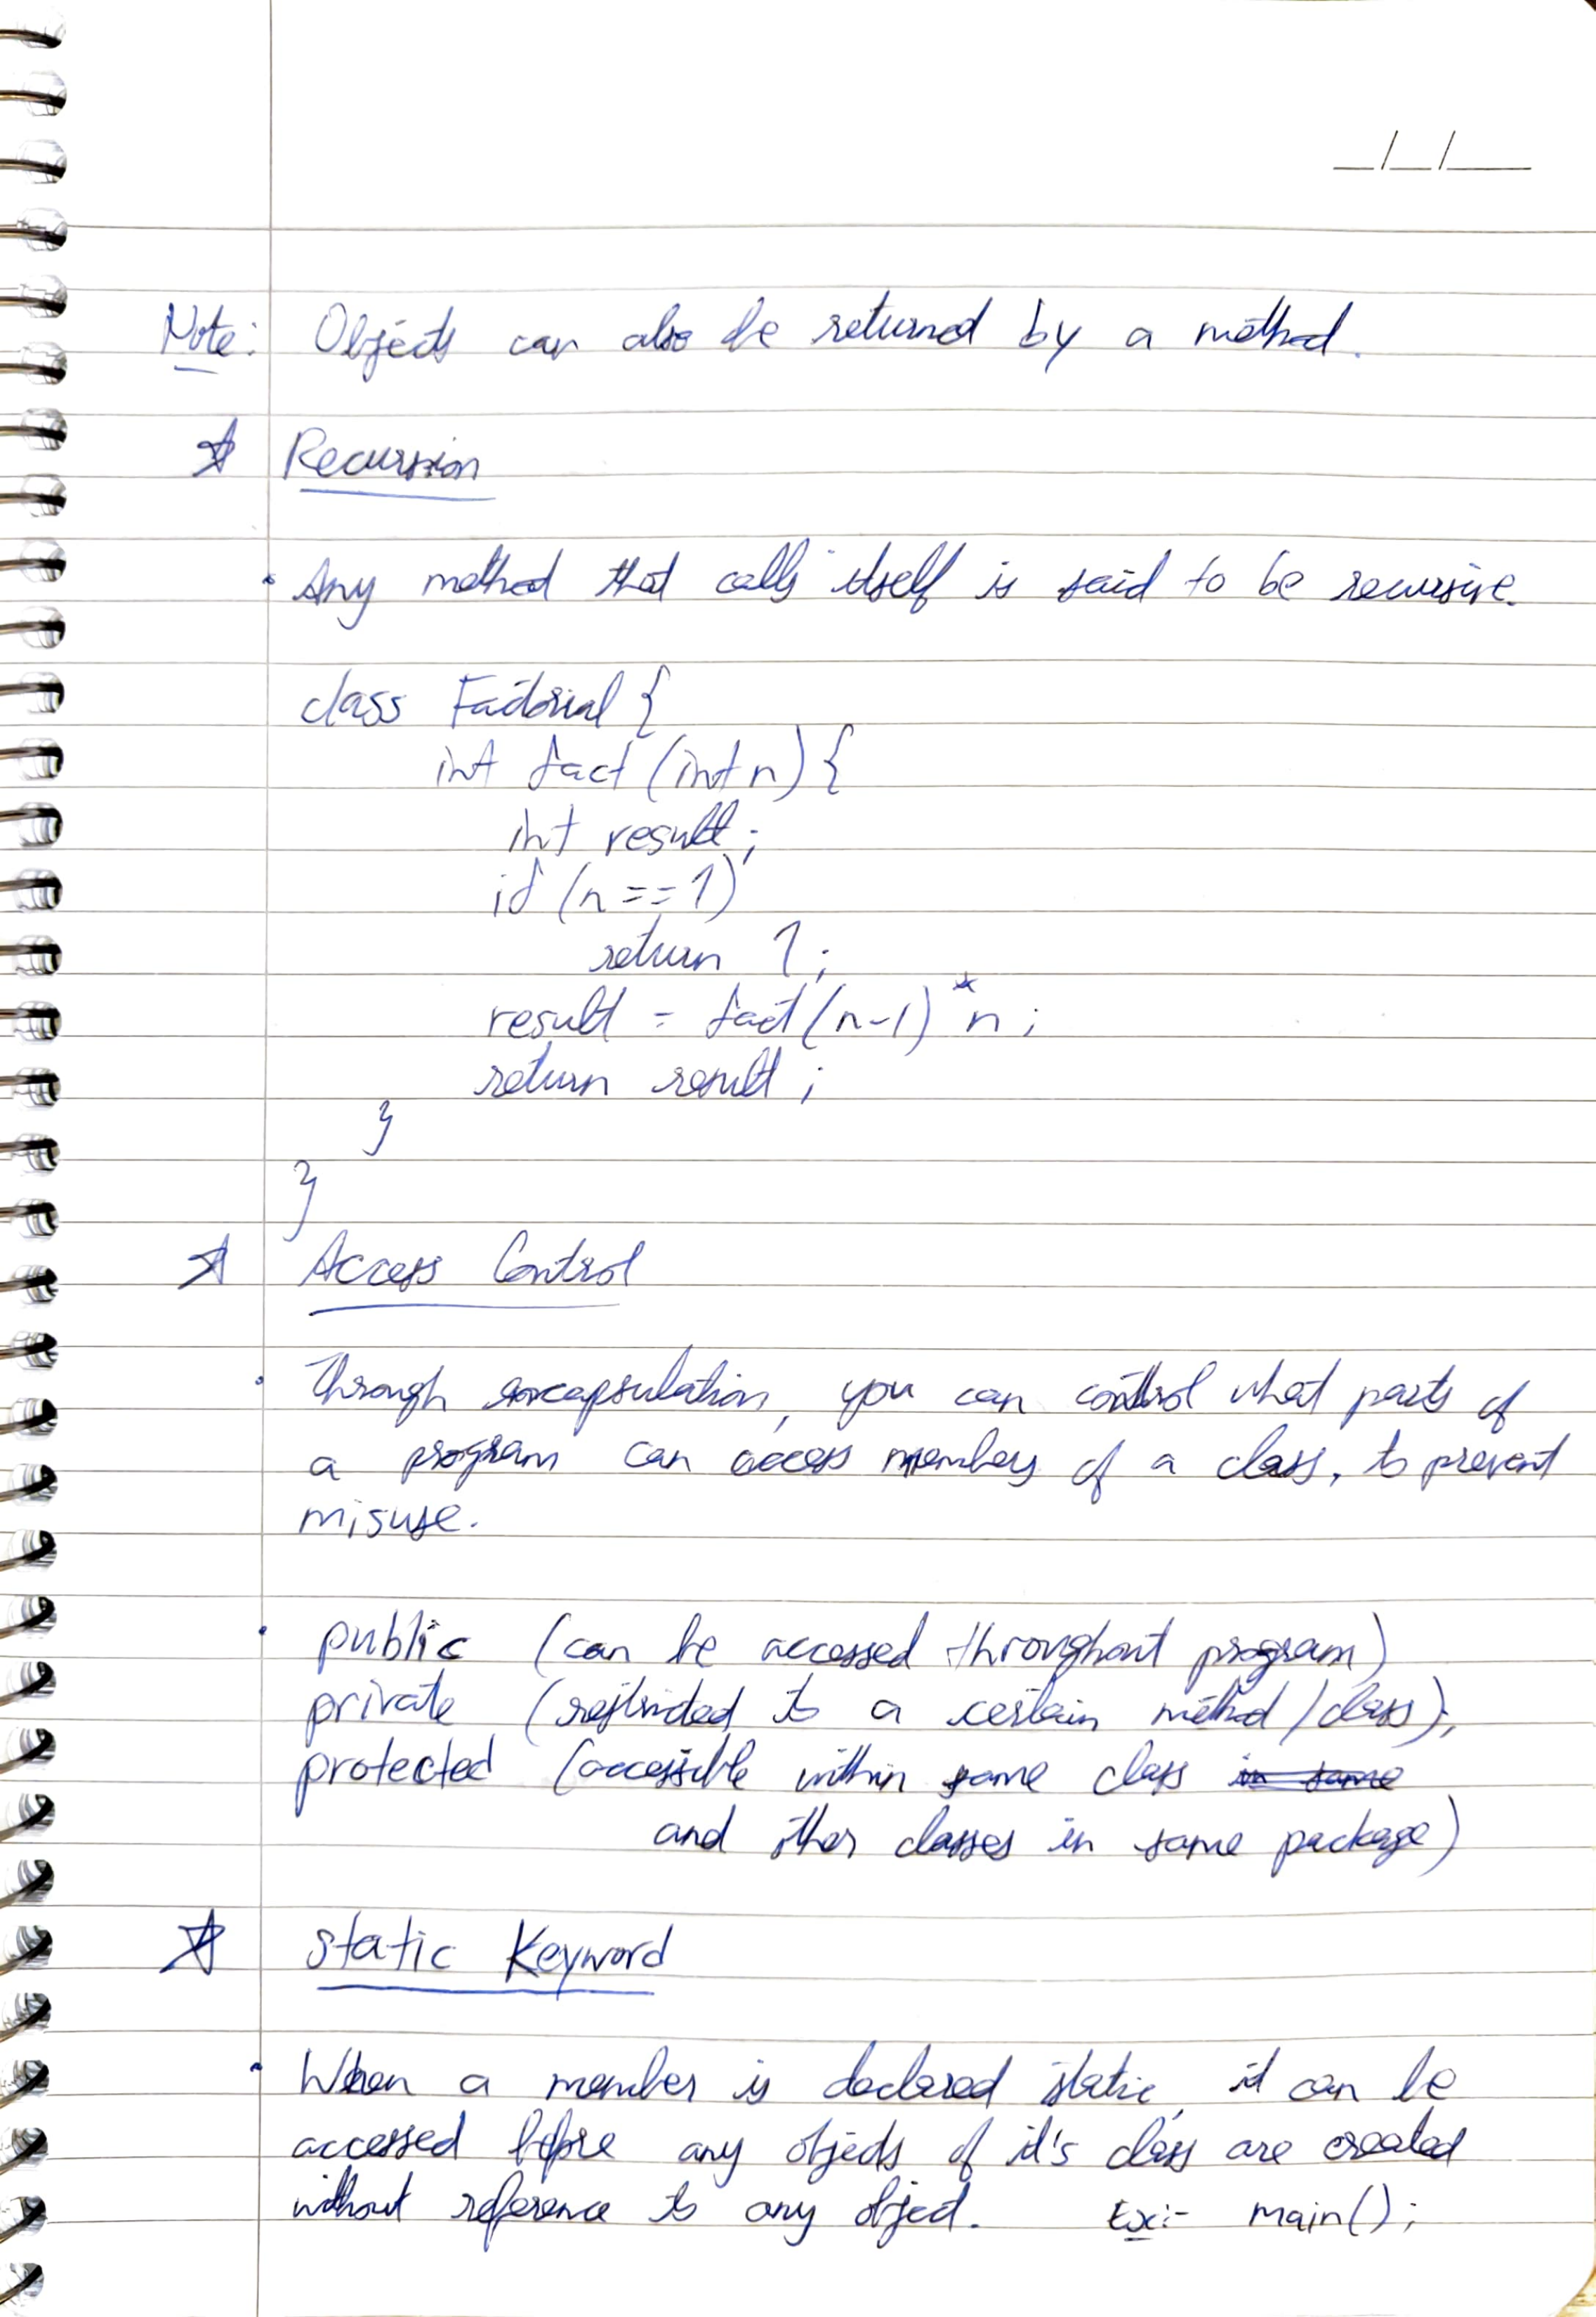 _/_/_
Note: Objects can also be returned by a method.
☆ Recursion
• Any method that calls itself is said to be recursive.
class Factorial {
int fact (int n) {
int result;
if (n == 1)
return 1;
result = fact(n-1) * n;
return result;
}
}
☆ Access Control
• Through encapsulation, you can control what parts of
a program can access members of a class, to prevent
misuse.
• public (can be accessed throughout program)
private (restricted to a certain method / class);
protected (accessible within same class in same
and other classes in same package)
☆ static Keyword
• When a member is declared static, it can be
accessed before any objects of it's class are created
without reference to any object. Ex:- main();